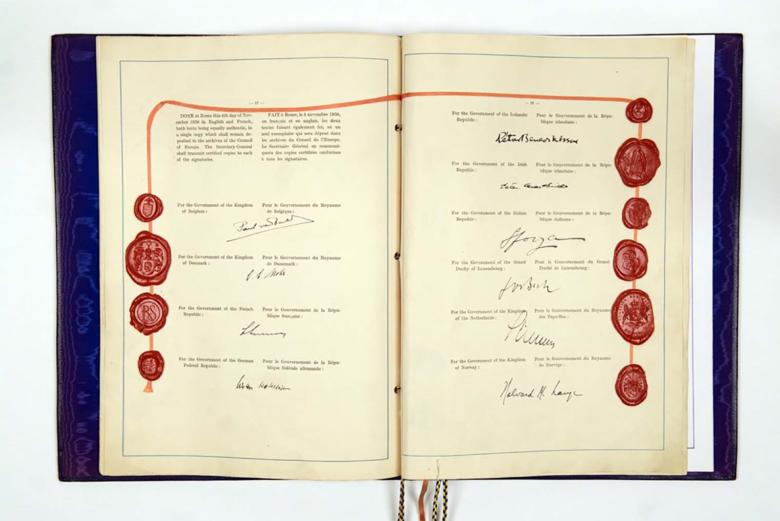 — 17 —
DONE at Rome this 4th day of Nov-
ember 1950 in English and French,
both texts being equally authentic, in
a single copy which shall remain de-
posited in the archives of the Council
of Europe. The Secretary-General
shall transmit certified copies to each
of the signatories.
FAIT à Rome, le 4 novembre 1950,
en français et en anglais, les deux
textes faisant également foi, en un
seul exemplaire qui sera déposé dans
les archives du Conseil de l'Europe.
Le Secrétaire Général en communi-
quera des copies certifiées conformes
à tous les signataires.
For the Government of the Kingdom
of Belgium :
Pour le Gouvernement du Royaume
de Belgique :
Paul van
For the Government of the Kingdom
of Denmark :
Pour le Gouvernement du Royaume
de Danemark :
For the Government of the French
Republic :
Pour le Gouvernement de la Répu-
blique française :
For the Government of the German
Federal Republic :
Pour le Gouvernement de la Répu-
blique fédérale allemande :
RS
— 18 —
For the Government of the Icelandic
Republic :
Pour le Gouvernement de la Répu-
blique islandaise :
For the Government of the Irish
Republic :
Pour le Gouvernement de la Répu-
blique irlandaise :
For the Government of the Italian
Republic :
Pour le Gouvernement de la Répu-
blique italienne :
Sforza
For the Government of the Grand
Duchy of Luxembourg :
Pour le Gouvernement du Grand
Duché de Luxembourg :
Jos Bech
For the Government of the Kingdom
of the Netherlands :
Pour le Gouvernement du Royaume
des Pays-Bas :
For the Government of the Kingdom
of Norway :
Pour le Gouvernement du Royaume
de Norvège :
Halvard M. Lange